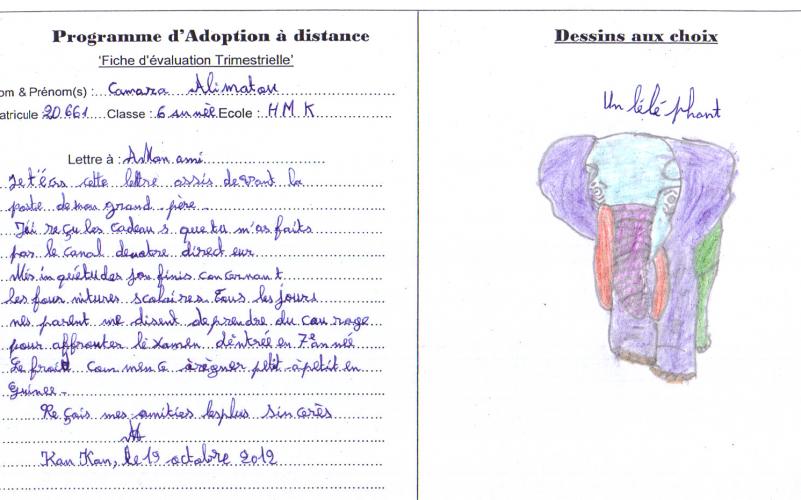 Programme d'Adoption à distance
'Fiche d'évaluation Trimestrielle'
om & Prénom(s) : Camara Alimatou
atricule 20.661 Classe : 6 année Ecole : H M K
Lettre à : A Mon ami
Je t'écris cette lettre assis devant la
porte de mon grand père
J'ai reçu les cadeau s que tu m'as faits
par le canal de notre direct eur
Més in quiétudes son finis con cernan t
les four nitures scolaires. Tous les jours
mes parent me disent de prendre du cou rage
pour affronter lé xamen d'éntrée en 7e année
Le froid com men ce à règner petit à petit en
Guinee.
Re çois mes amitiés les plus sin cerès
Kan Kan, le 19 octobre 2012
Dessins aux choix
Un lélé phant